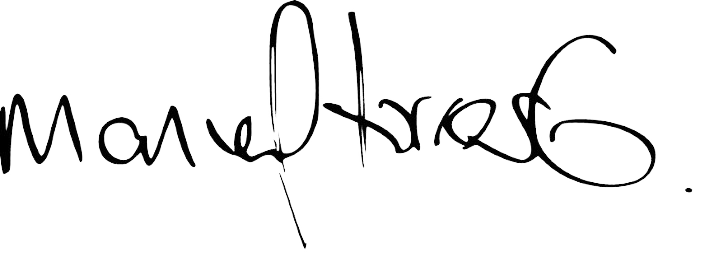 Manuel Torres G.